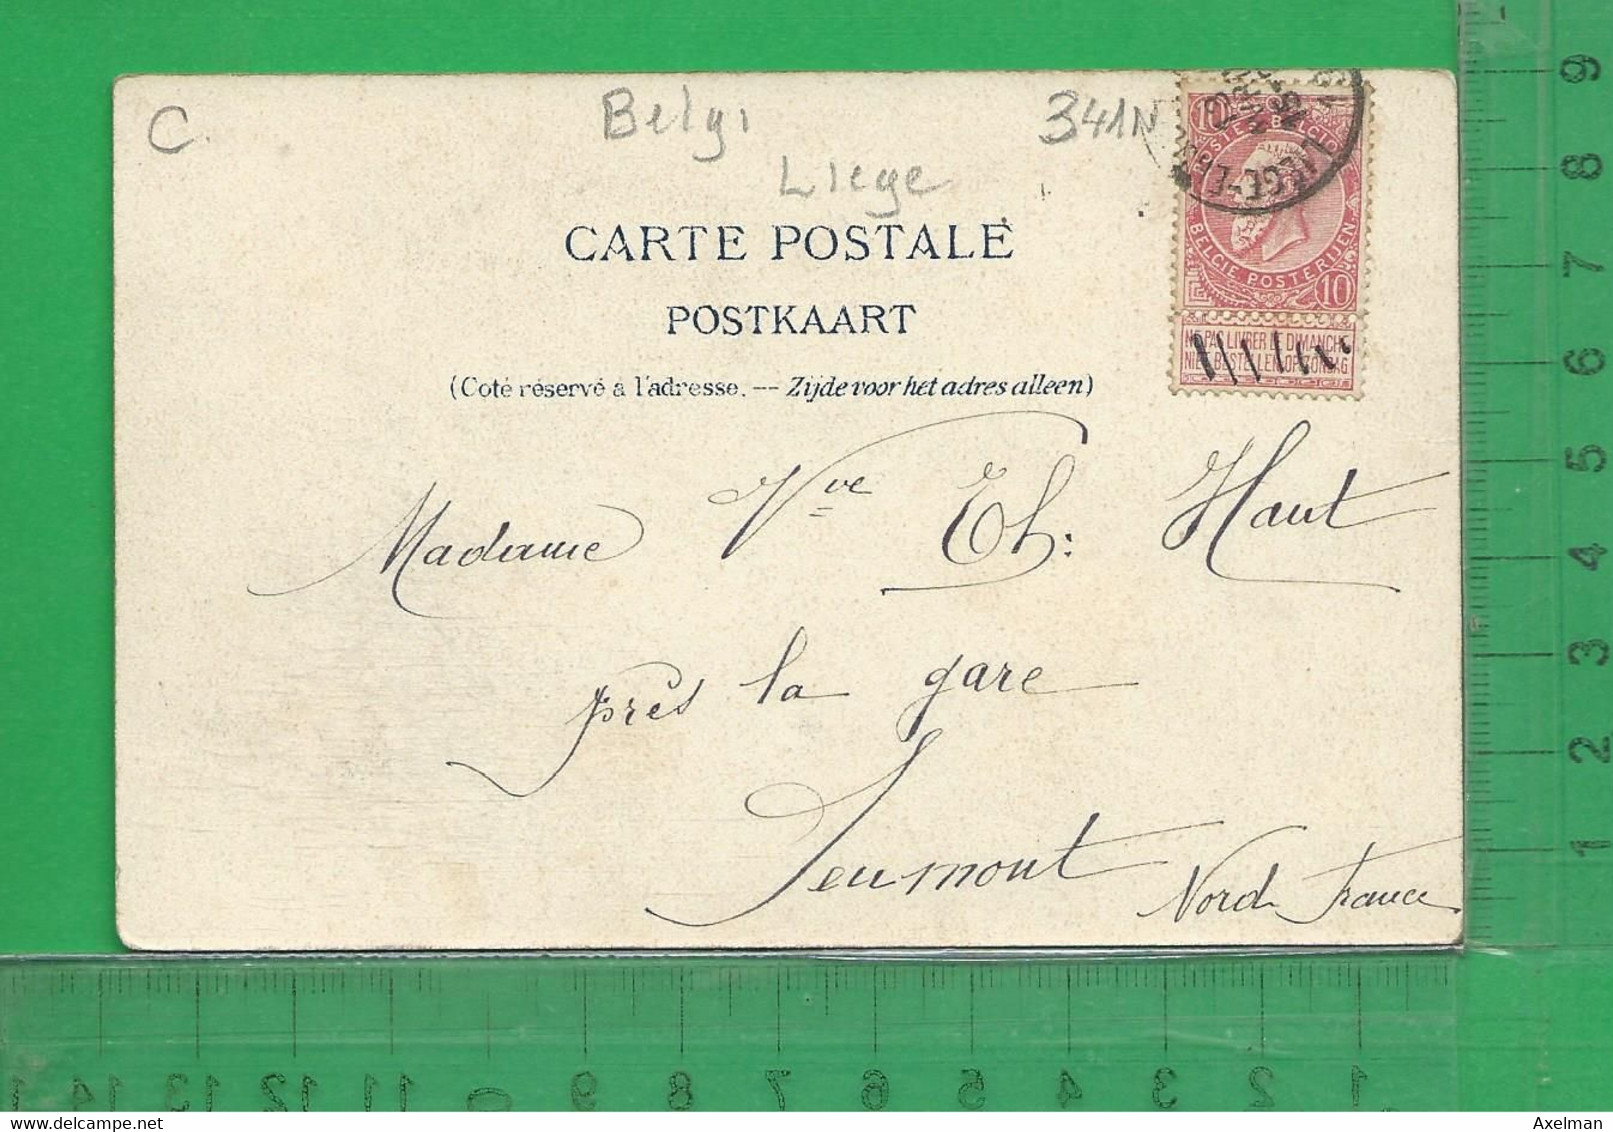 C.
Belgi
341N
Liege
CARTE POSTALE
POSTKAART
(Coté réservé a l'adresse. — Zijde voor het adres alleen)
10
BELGIE POSTERIJEN
10
NE PAS LIVRER LE DIMANCHE
NIET BESTELLEN OP ZONDAG
Madame Vve Th: Haut
près la gare
Jeumont
Nord France
9
8
7
6
5
4
3
2
1
14 13 12 11 10 9 8 7 6 5 4 3 2 1
www.delcampe.net
Axelman